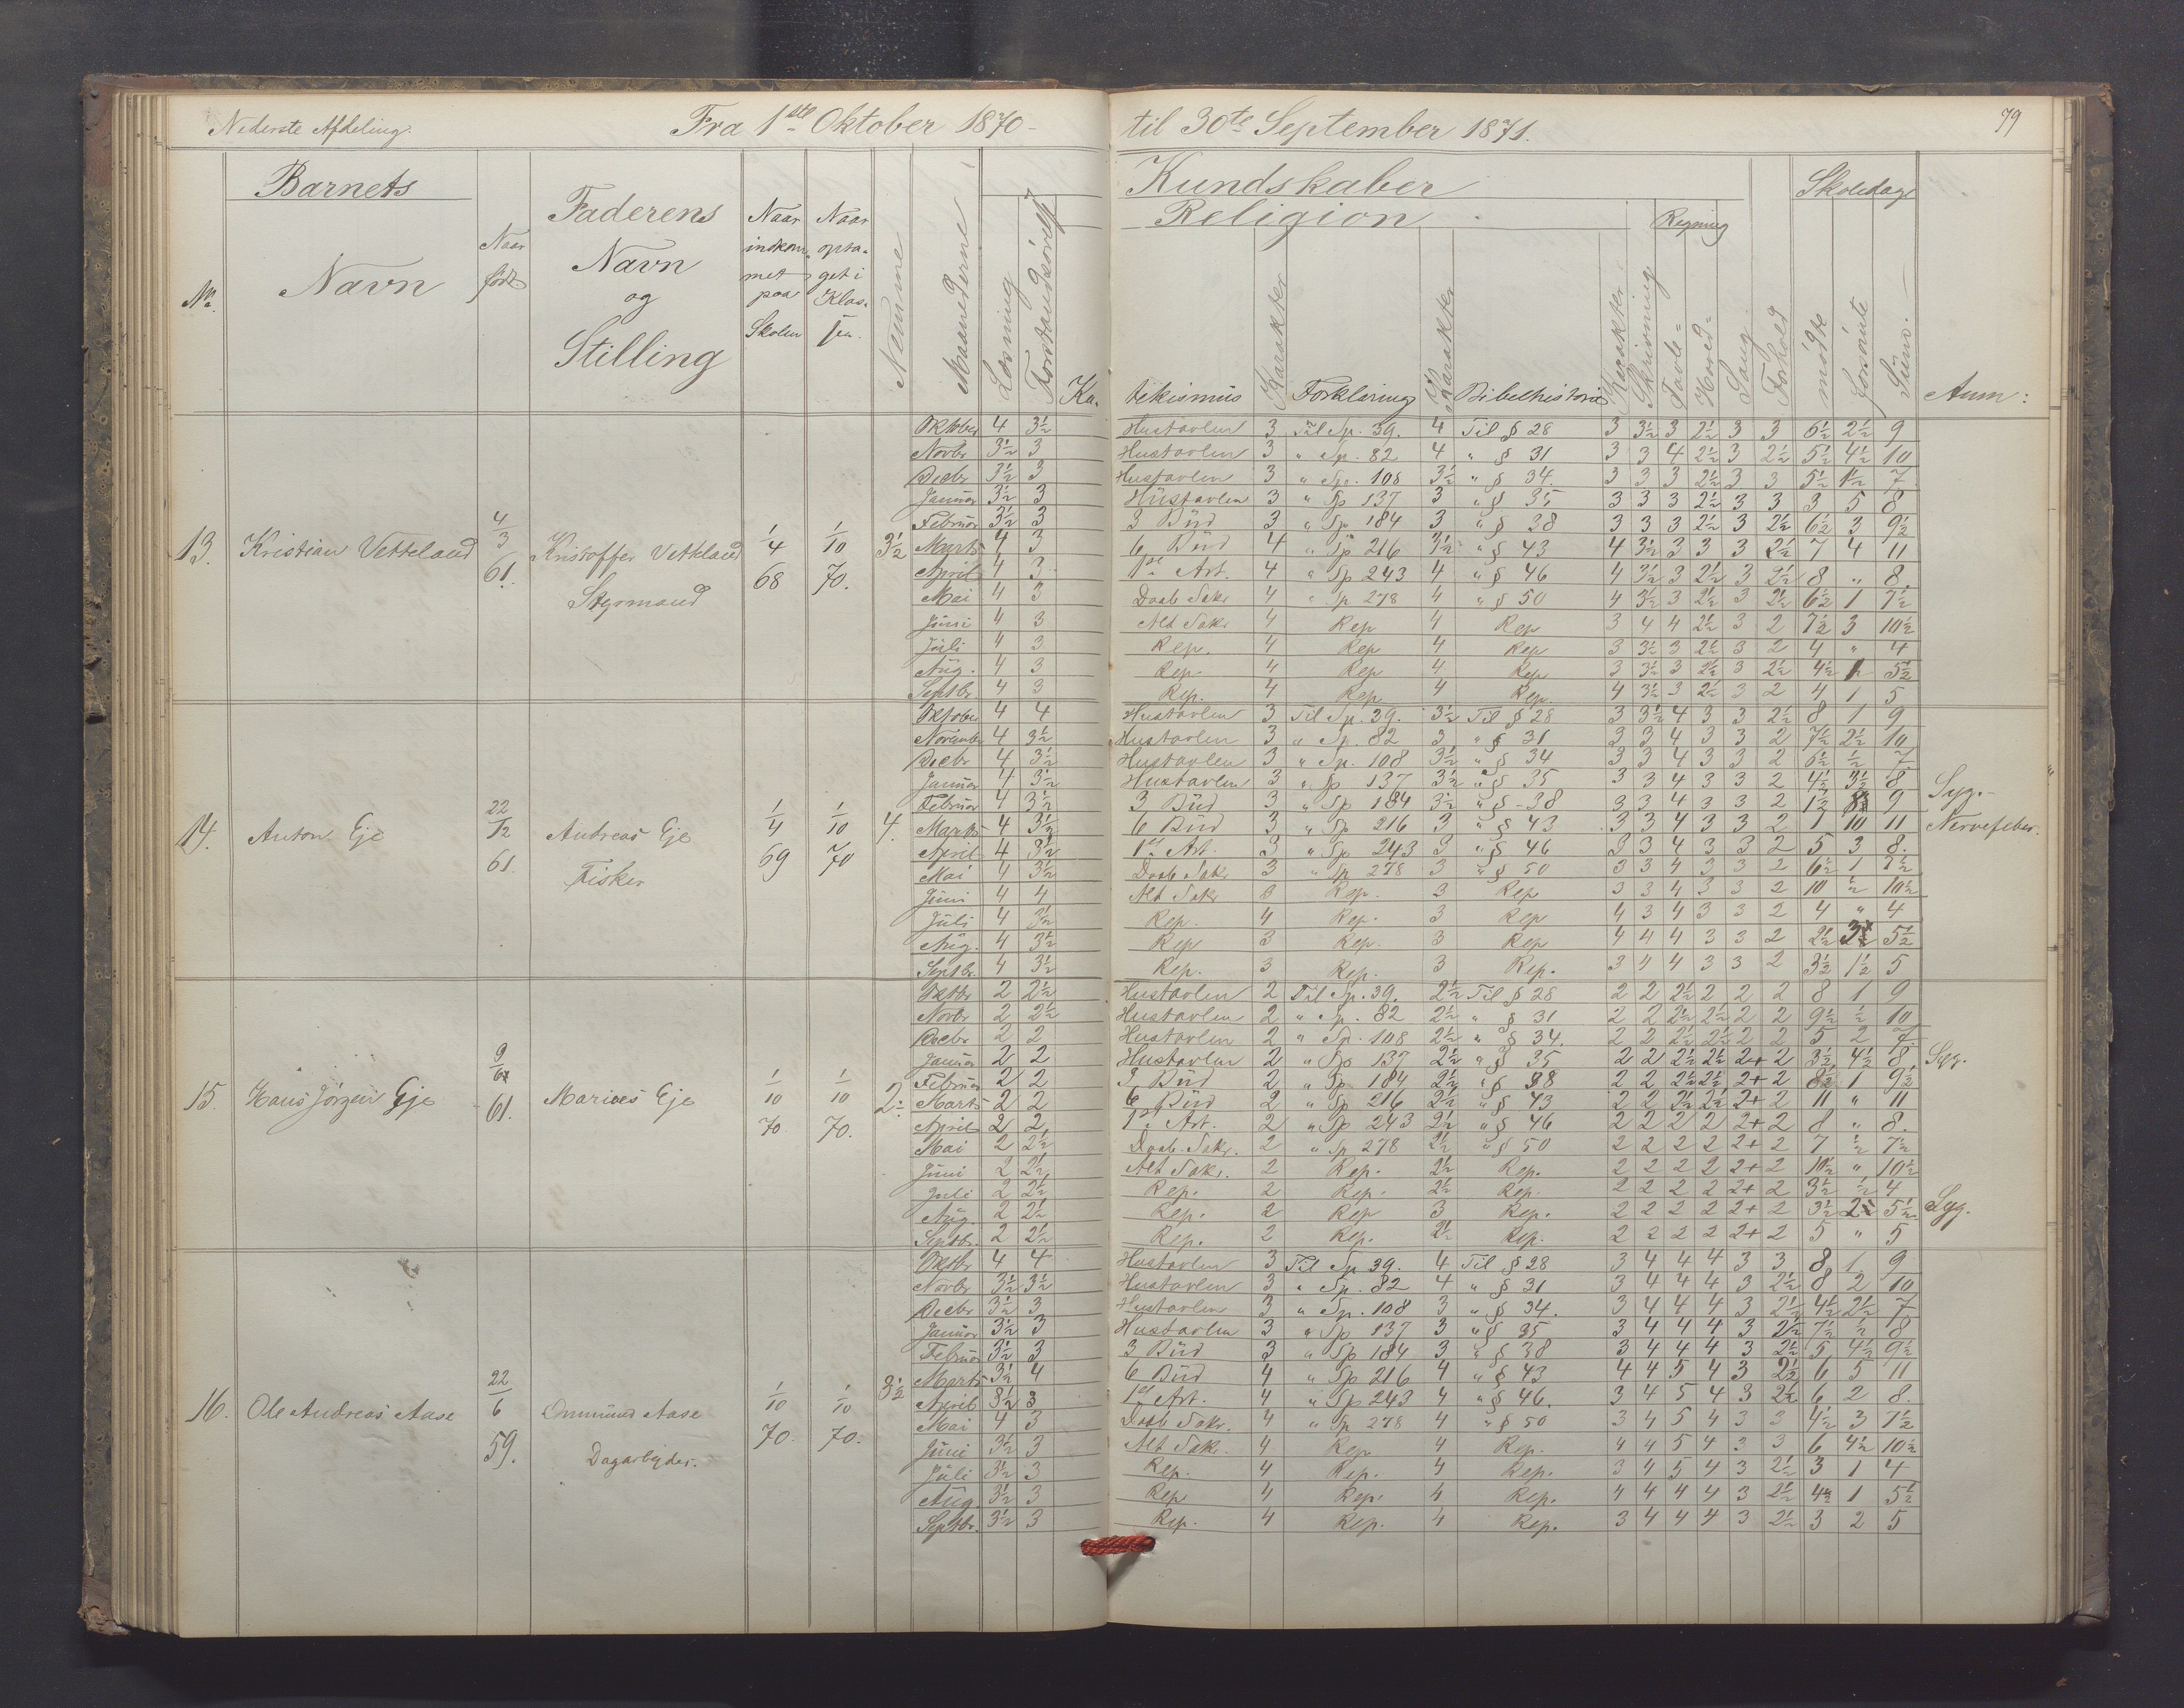 Nederste Afdeling.
Fra 1ste Oktober 1870 - til 30te September 1871.
79
Barnets
Kundskaber
Skoledage
Religion
Regning
No.
Navn
Naar født
Faderens Navn og Stilling
Naar indkommet paa Skolen
Naar optaget i Klassen
Numme
Maanederne
Læsning
Forstandsøvelse
Ka-
tekismus
Karakter
Forklaring
Karakter
Bibelhistorie
Karakter
Skrivning
Tavle=
Hoved=
Sang
Forhold
mødte
forsømte
Sum.
Anm:
13. Kristian Vetteland 4/3 61. Kristoffer Vetteland Styrmand 1/4 68 1/10 70. 3½
Oktober 4 3½ Hustavlen 3 Til Sp. 39. 4 Til § 28 3 3½ 3 2½ 3 3 6½ 2½ 9
Novbr 3½ 3 Hustavlen 3 " Sp. 82 4 " § 31 3 3 4 2½ 3 2½ 5½ 4½ 10
Decbr 3½ 3 Hustavlen 3 " Sp. 108 3½ " § 34. 3 3 3 2½ 3 3 5½ 1½ 7
Januar 3½ 3 Hustavlen 3 " Sp 137 3 " § 35 3 3 3 2½ 3 3 3 5 8
Februar 3½ 3 3 Bud 3 " Sp 184 3 " § 38 3 3 3 2½ 3 2½ 6½ 3 9½
Marts 4 3 6 Bud 4 " Sp 216 3½ " § 43 4 3½ 3 3 3 2½ 7 4 11
April 4 3 1ste Art. 4 " Sp 243 4 " § 46 4 3½ 3 2½ 3 2½ 8 " 8.
Mai 4 3 Daab Sakr 4 " Sp 278 4 " § 50 4 3½ 3 2½ 3 2½ 6½ 1 7½
Juni 4 3 Alt Sakr 4 Rep 4 Rep 3 4 4 2½ 3 2 7½ 3 10½
Juli 4 3 Rep. 4 Rep 4 Rep 3 3½ 3 2½ 3 2 4 " 4
Aug. 4 3 Rep. 4 Rep 4 Rep 3 3½ 3 2½ 3 2½ 4½ 1 5½
Septbr 4 3 Rep. 4 Rep 4 Rep. 4 3½ 3 2½ 3 2 4 1 5
14. Anton Eje 22/12 61. Andreas Eje Fisker 1/4 69 1/10 70 4.
Oktober 4 4 Hustavlen 3 Til Sp. 39. 3½ Til § 28 3 3½ 4 3 3 2½ 8 1 9
November 4 3½ Hustavlen 3 " Sp. 82 3 " § 31 3 3 4 3 3 2 7½ 2½ 10
Decbr 4 3½ Hustavlen 3 " Sp. 108 3½ " § 34 3 3 4 3 3 2 6½ ½ 7
Januar 4 3½ Hustavlen 3 " Sp 137 3½ " § 35 3 3 4 3 3 2 4½ 3½ 8
Februar 4 3½ 3 Bud 3 " Sp 184 3½ " § - 38 3 3 4 3 3 2 1½ 8 9 Syg.-
Marts 4 3½ 6 Bud 3 " Sp 216 3 " § 43 3 3 4 3 3 2 1 10 11 Nervefeber.
April 4 3½ 1ste Art. 3 " Sp 243 3 " § 46 3 3 4 3 3 2 5 3 8.
Mai 4 3½ Daab Sakr 3 " Sp 278 3 " § 50 3 3 4 3 3 2 6½ 1 7½
Juni 4 4 Alt Sakr 3 Rep. 3 Rep 3 3 4 3 3 2 10 ½ 10½
Juli 4 3½ Rep. 4 Rep. 3 Rep 4 3 4 3 3 2 4 " 4
Aug. 4 3½ Rep 3 Rep. 3 Rep 4 4 4 3 3 2 2½ 3 5½
Septbr. 4 3½ Rep. 3 Rep. 3 Rep. 3 4 4 3 3 2 3½ 1½ 5
15. Hans Jørgen Eje 9/ 61. Eje 1/10 70 1/10 70. 2.
Oktbr 2 2½ Hustavlen 2 Til Sp. 39. 2½ Til § 28 2 2 2½ 2 2 2 8 1 9
Novbr 2 2½ Hustavlen 2 " Sp. 82 2½ " § 31 2 2 2½ 2½ 2 2 9½ ½ 10
Decbr 2 2 Hustavlen 2 " Sp. 108 2½ " § 34. 2 2 2½ 2½ 2 2 5 2 7
Januar 2 2 Hustavlen 2 " Sp 137 2½ " § 35 2 2 2½ 2½ 2+ 2 3½ 4½ 8 Syg.
Februar 2 2 3 Bud 2 " Sp 184 2½ " § 38 2 2 2½ 2½ 2+ 2 8½ 1 9½
Marts 2 2 6 Bud 2 " Sp 216 2½ " § 43 2 2 2½ 2½ 2+ 2 11 " 11
April 2 2 1ste Art. 2 " Sp 243 2½ " § 46 2 2 2 2 2+ 2 8 " 8.
Mai 2 2½ Daab Sakr. 2 " Sp 278 2½ " § 50 2 2 2 2 2+ 2 7 ½ 7½
Juni 2 2½ Alt Sakr. 2 Rep. 2½ Rep. 2 2 2 2 2+ 2 10½ " 10½
Juli 2 2½ Rep. 2 Rep. 2½ Rep. 2 2 2 2 2+ 2 3½ ½ 4
Aug. 2 2½ Rep. 2 Rep 3 Rep. 2 2 2 2 2+ 2 3½ 2 5½ Syg.
Septbr. 2 2½ Rep. 2 Rep. 2½ Rep. 2 2 2 2 2+ 2 5 " 5
16. Ole Andreas Aase 22/6 59. Ommund Aase Dagarbejder. 1/10 70. 1/10 70. 3½
Oktbr 4 4 Hustavlen 3 Til Sp 39. 4 Til § 28 3 4 4 4 3 3 8 1 9
Novbr 3½ 3½ Hustavlen 3 " Sp. 82 4 " § 31 3 4 4 4 3 2½ 8 2 10
Decbr 3½ 3 Hustavlen 3 " Sp. 108 3 " § 34. 3 4 4 4 3 2½ 4½ 2½ 7
Januar 3½ 3 Hustavlen 3 " Sp 137 3 " § 35 3 4 4 4 3 2½ 7½ ½ 8
Februar 3½ 3 3 Bud 3 " Sp 184 3 " § 38 3 4 4 4 3 2½ 5 4½ 9½
Marts 3½ 4 6 Bud 4 " Sp 216 4 " § 43 4 4 5 4 3 2½ 6 5 11
April 3½ 3 1ste Art. 4 " Sp 243 4 " § 46. 3 4 5 4 3 2½ 6 2 8.
Mai 4 3 Daab Sakr. 4 " Sp 278 4 " § 50 3 4 5 4 3 3 4½ 3 7½
Juni 3½ 3 Alt Sakr. 4 Rep 4 Rep. 4 4 5 4 3 3 6 4½ 10½
Juli 3½ 3 Rep. 4 Rep. 4 Rep. 3 4 5 4 3 2½ 3 1 4
Aug. 3½ 3 Rep 4 Rep. 4 Rep. 4 4 4 4 3 2½ 4½ 1 5½
Septbr. 3½ 3 Rep. 4 Rep. 4 Rep. 3 4 4 4 3 2½ 3 2 5